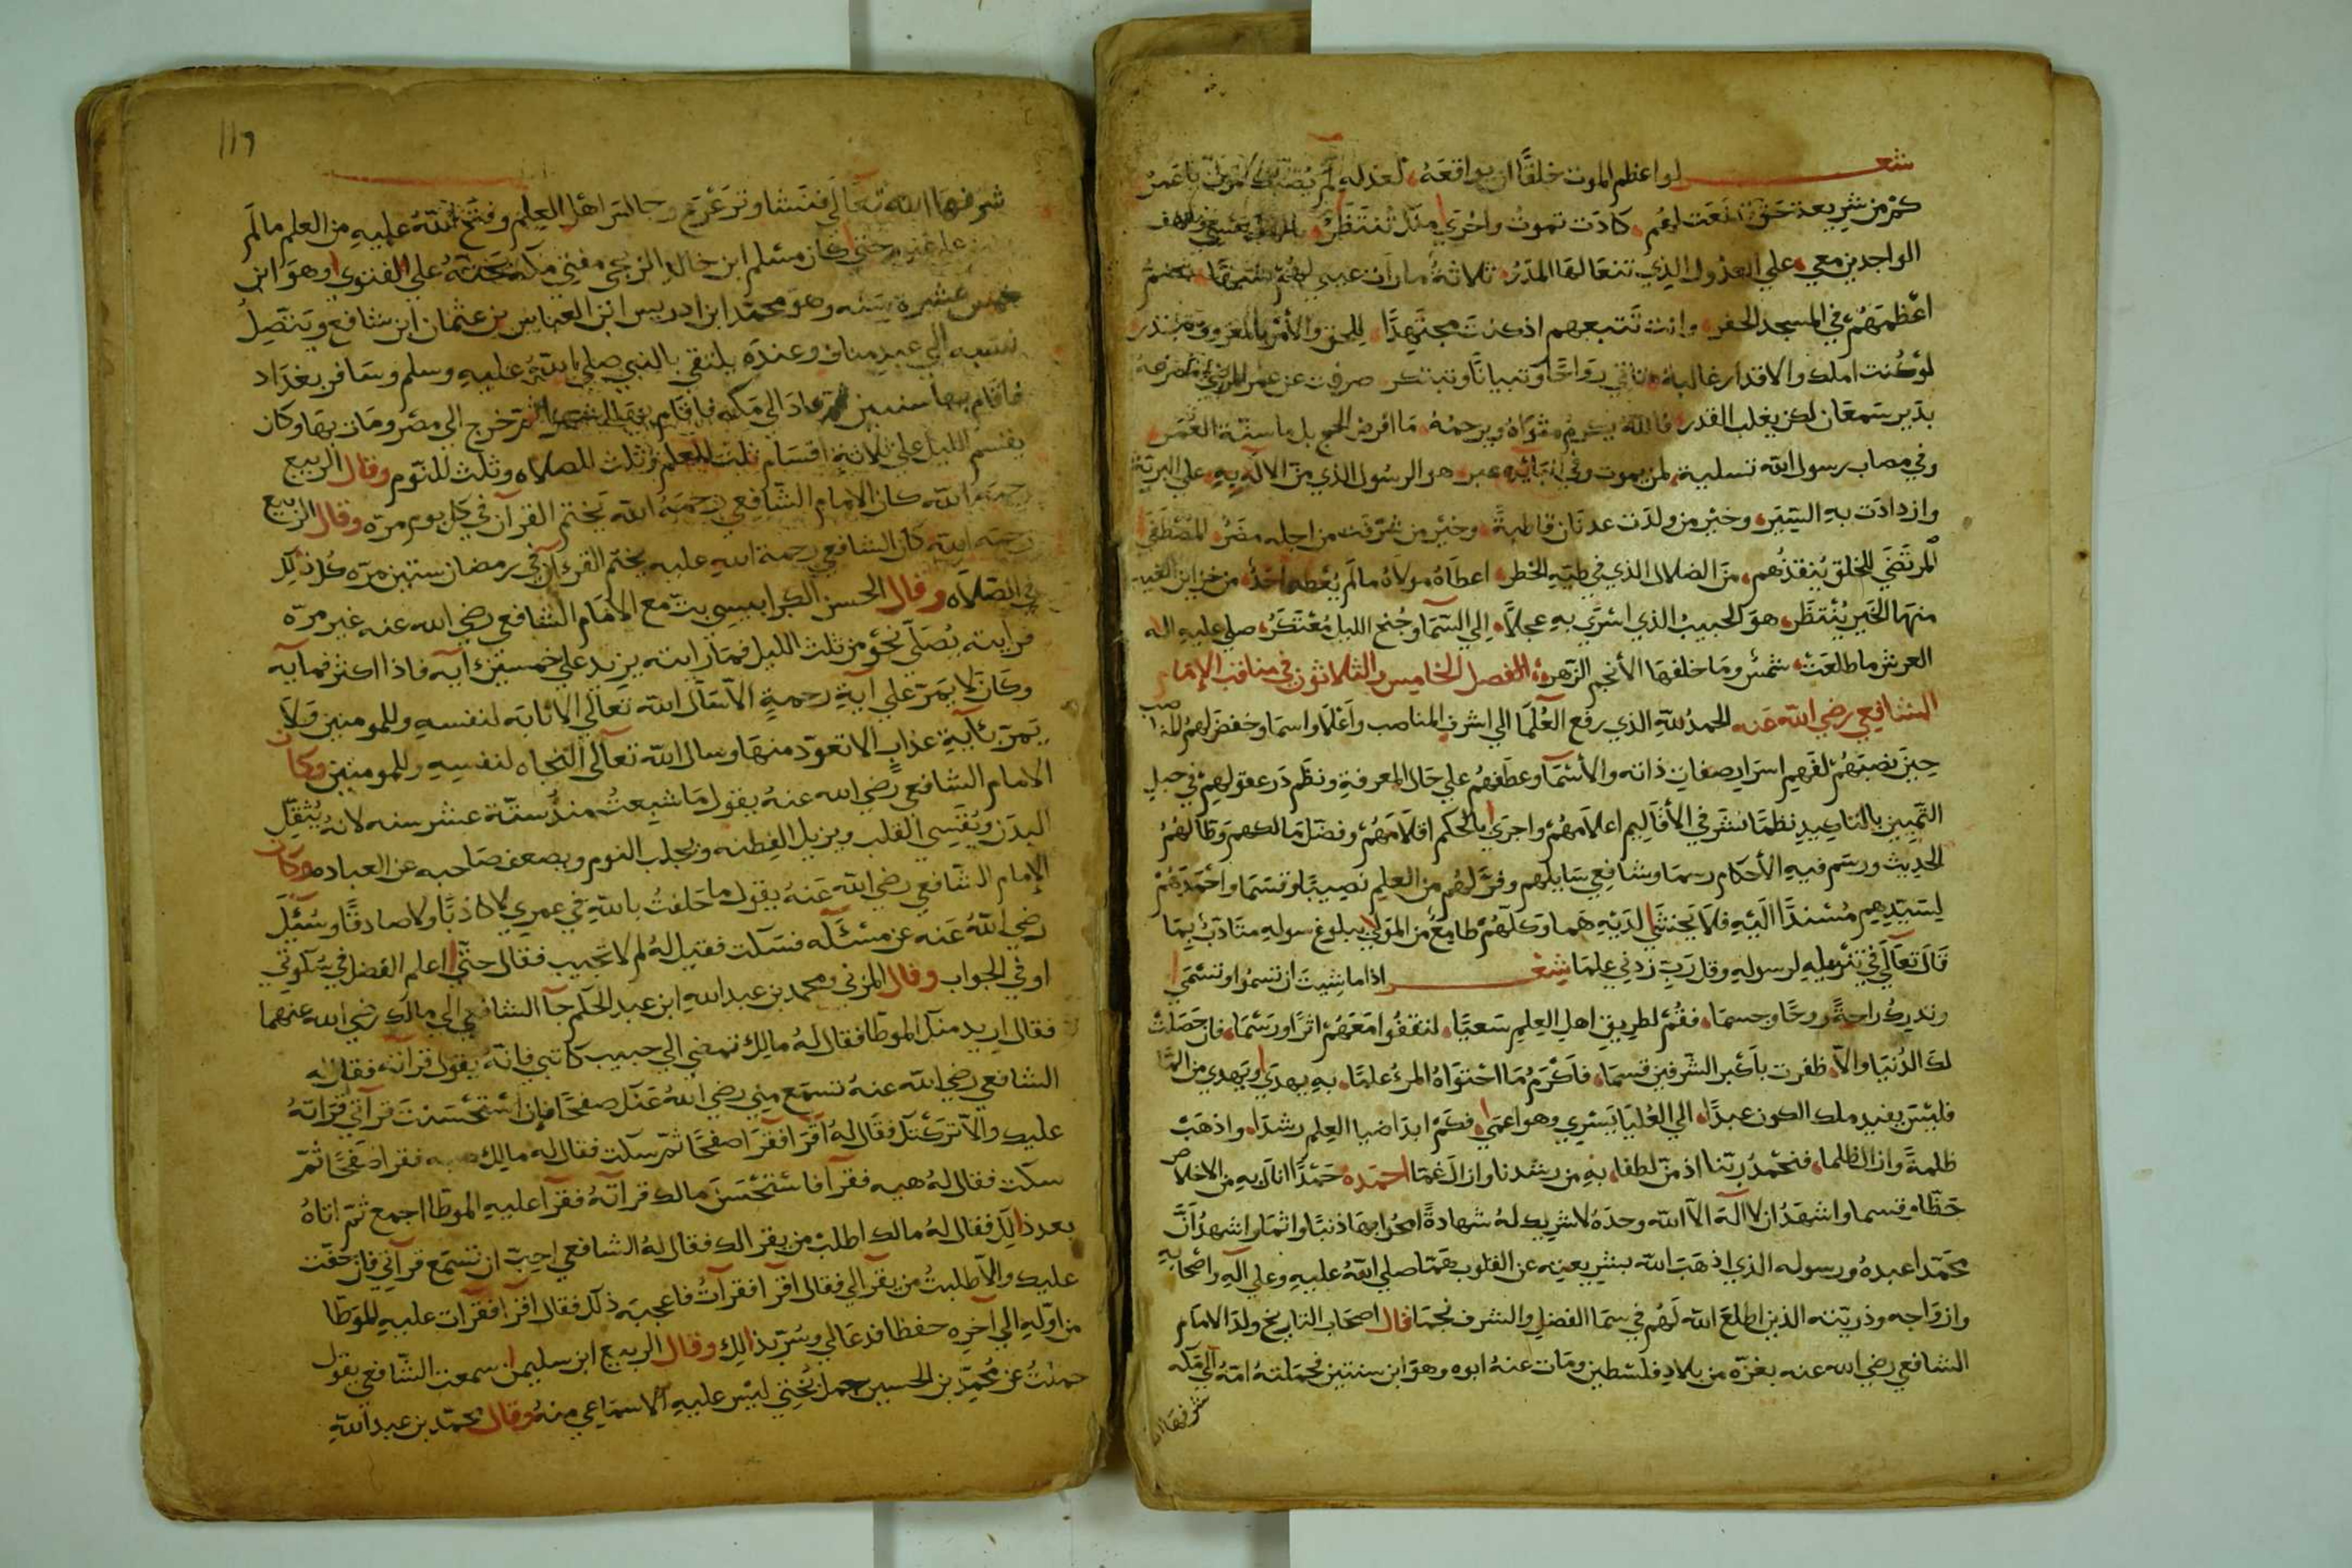 شعر لو اعظم الموت خلقًا ان يواقعه لعدله لم يصبك الموت يا عمر
كم من شريعة حق نعت لهم كادت تموت واخرى منك تنتظر
الواجدين معي على العدول الذي تنعا لها المدر ثلاثة ما رات عيني لهم شبها
اعظمهم في المسجد الحفر وانت تتبعهم اذ كنت مجتهدًا للحق والأمر بالمعروف
لو كنت املك والاقدار غالبة تاتي رواحًا وتبيانًا وتبتكر صرفت عن عمر
بدير سمعان لكن يغلب القدر فالله يكرم مثواه ويرحمه ما افرض الحج بل ما سنة العمر
وفي مصاب رسول الله تسلية لمن يموت وفي انبائه عبر هو الرسول الذي من الاله به على البرية
وازدادت به السير وخير من ولدت عدنان قاطبةً وخير من شرفت من اجله مضر المصطفى
المرتضى للخلق ينقذهم من الضلال الذي في طيه الخطر اعطاه مولاه ما لم يعطه احد من خزاين الغيب
منها الخير ينتظر هو الحبيب الذي اسرى به عجلًا الى السما وجنح الليل معتكر صلى عليه اله
العرش ما طلعت شمس وما خلفها الأنجم الزهر الفصل الخامس والثلاثون في مناقب الإمام
الشافعي رضي الله عنه الحمد لله الذي رفع العلما الى اشرف المناصب وأعلا واسما وخفض لهم المنا صب
حين نصبهم لفهم اسرار صفات ذاته والأسما وعطفهم على حال المعرفة ونظم در عقولهم في حبل
التمييز بالتاكيد نظما نشر في الأقاليم اعلامهم واجرى بالحكم اقلامهم وفضل مالكهم وظالهم
الحديث ورسم فيه الأحكام رسما وشافعي سايلهم وفر لهم من العلم نصيبًا وقسما واحمدهم
لسيدهم مسندًا اليه فلا يخشى لديه هما وكلهم طامع من المولى ببلوغ سوله متادب بما
قال تعالى في تنزيله لرسوله وقل رب زدني علما شعر اذا ما شيت ان تسموا وتسمى
وتدرك راحةً روحًا وجسما فقم لطريق اهل العلم سعيًا لتقفوا معهم اثرًا ورسما فان حصلت
لك الدنيا والا ظفرت باكبر الشرفين قسما فاكرم ما احتواه المرء علما به يهدى ويهدي من الما
فليس يفيد ملك الكون عبدًا الى العليا يسري وهو اعمى فكم ابدا ضيا العلم رشدا واذهب
ظلمةً وازال ظلما فنحمد ربنا اذ من لطفا به من رشدنا وازال غما احمده حمدًا انال به من الاخلاص
حظا وقسما واشهد ان لا اله الا الله وحده لا شريك له شهادةً امحوا بها ذنبًا واثما واشهد ان
محمدا عبده ورسوله الذي اذهب الله بشريعته عن القلوب همًا صلى الله عليه وعلى اله واصحابه
وازواجه وذريته الذين اطلع الله لهم في سما الفضل والشرف نجما قال اصحاب التاريخ ولد الامام
الشافعي رضي الله عنه بغزه من بلاد فلسطين ومات عنه ابوه وهو ابن سنتين فحملته امه الى مكه
شرفها الله
١١٦
شرفها الله تعالى فنشا وترعرع وجالس اهل العلم وفتح الله عليه من العلم ما لم
على غيره حتى كان مسلم ابن خالد الزنجي مفتي مكه يحثه على الفتوى وهو ابن
خمس عشرة سنه وهو محمد ابن ادريس ابن العباس بن عثمان ابن شافع ويتصل
نسبه الى عبد مناف وعنده يلتقي بالنبي صلى الله عليه وسلم وسافر بغداد
فاقام بها سنين ثم عاد الى مكه فاقام بها ثم خرج الى مصر ومات بها وكان
يقسم الليل على ثلاثة اقسام ثلث للعلم وثلث للصلاه وثلث للنوم وقال الربيع
رحمه الله كان الامام الشافعي رحمه الله يختم القرآن في كل يوم مره وقال الربيع
رحمه الله كان الشافعي رحمة الله عليه يختم القرءان في رمضان ستين مره كل ذلك
في الصلاه وقال الحسن الكرابيسي بت مع الامام الشافعي رضي الله عنه غير مره
فرايته يصلي نحو من ثلث الليل فما رايته يزيد على خمسين آيه فاذا اكثر فمايه
وكان لا يمر على آية رحمةٍ الا سال الله تعالى الاثابه لنفسه وللمومنين ولا
يمر بآية عذاب الا تعوذ منها وسال الله تعالى النجاه لنفسه وللمومنين وكان
الامام الشافعي رضي الله عنه يقول ما شبعت منذ ستة عشر سنه لانه يثقل
البدن ويقسي القلب ويزيل الفطنه ويجلب النوم ويضعف صاحبه عن العباده وكان
الإمام الشافعي رضي الله عنه يقول ما حلفت بالله في عمري لا كاذبًا ولا صادقًا وسئل
رضي الله عنه عن مسئله فسكت فقيل له لم لا تجيب فقال حتى اعلم الفضل في سكوتي
او في الجواب وقال المزني ومحمد بن عبد الله ابن عبد الحكم جا الشافعي الى مالك رضي الله عنهما
فقال اريد منك الموطا فقال له مالك تمضي الى حبيب كاتبي فانه يقول قرآته فقال له
الشافعي رضي الله عنه تسمع مني رضي الله عنك صفحًا فإن استحسنت قرآتي قراته
عليك والا تركتك فقال له اقرا فقرا صفحًا ثم سكت فقال له مالك هيه فقرا صفحًا ثم
سكت فقال له هيه فقرآ فاستحسن مالك قراته فقرآ عليه الموطا اجمع ثم اتاه
بعد ذالك فقال له مالك اطلب من يقرا لك فقال له الشافعي احب ان تسمع قرآتي فان خفت
عليك والا طلبت من يقرا لي فقال اقرا فقرآت فاعجبه ذلك فقال اقرا فقرات عليه الموطا
من اوله الى آخره حفظا فدعا لي وسر بذالك وقال الربيع ابن سليمن سمعت الشافعي يقول
حملت عن محمد بن الحسين حمل بختي ليس عليه الا سماعي منه وقال محمد بن عبد الله